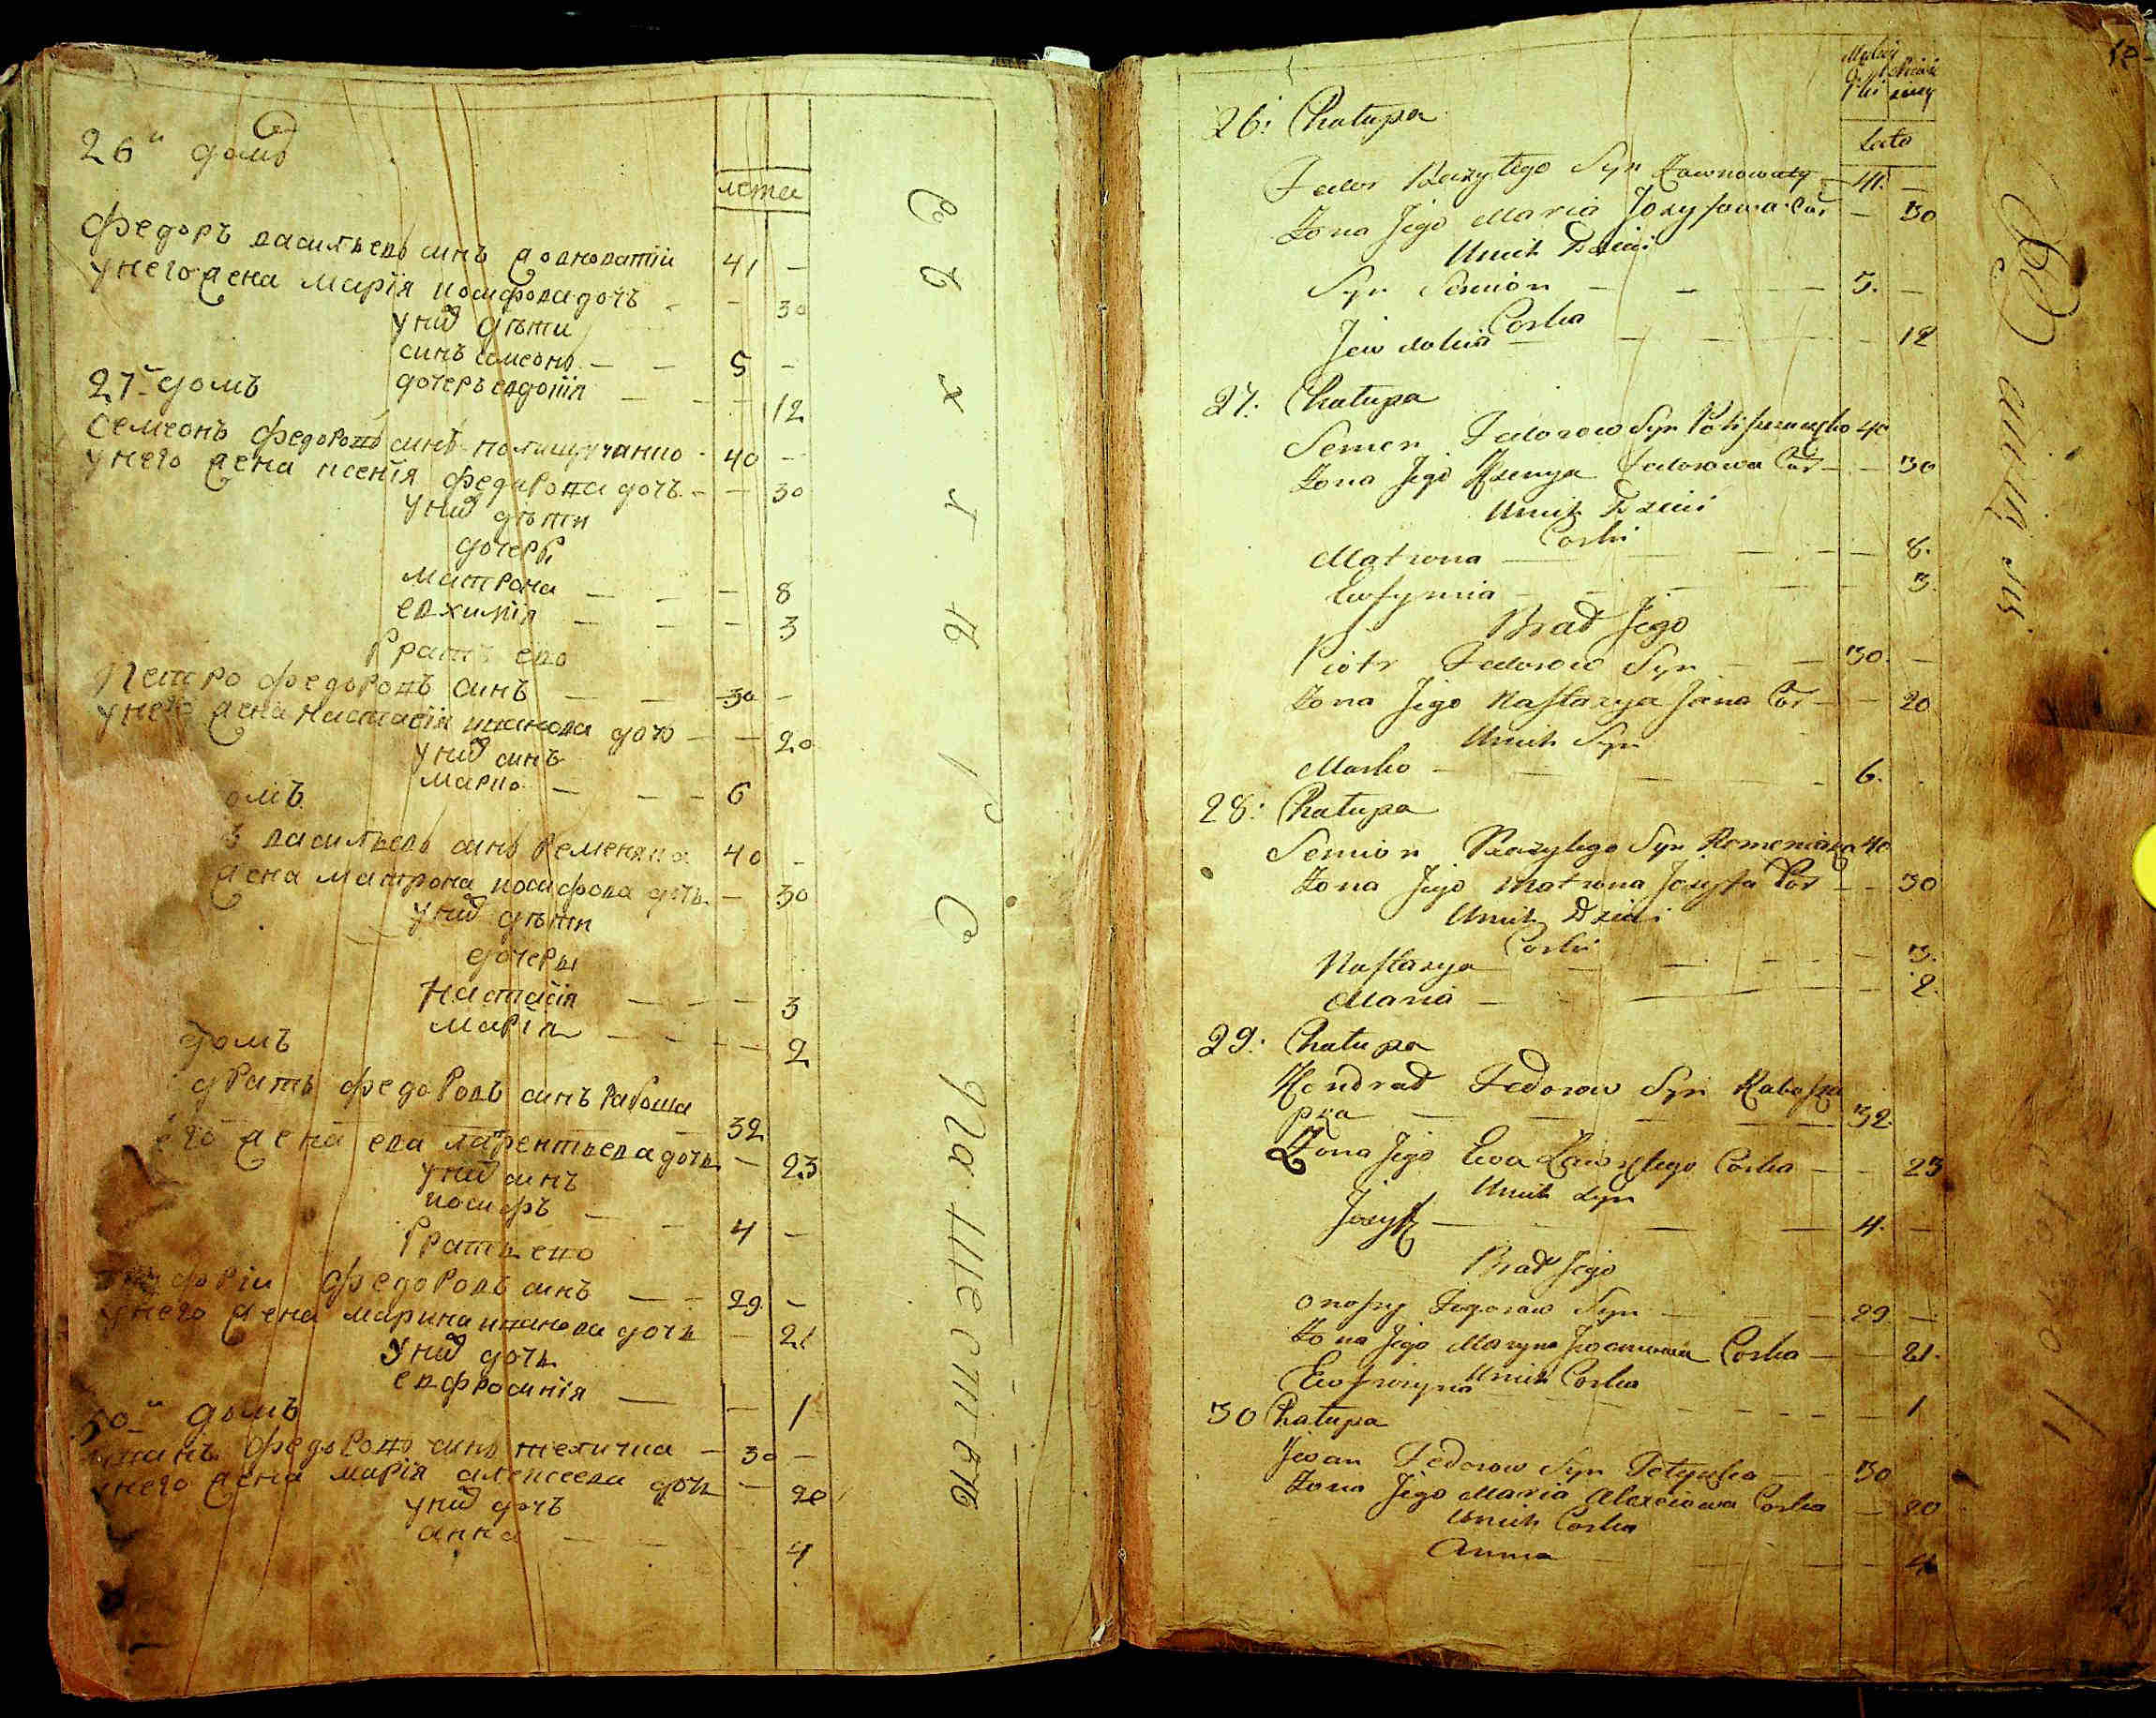 26й домъ
лета
Федоръ васильевъ синъ
41 –
у него жена Марїя иосифова дочъ – – 30
у них дѣти
синъ семеонъ – – 5 –
дочеръ евдокїя – – – 12
27й домъ
Семеонъ федоровъ синъ полищучанко 40 –
у него жена ксенїя федорова дочъ – – 30
у них дѣти
дочеры
матрона – – – 8
евхимїя – – – 3
братъ его
Петро федоровъ синъ – – 30 –
у него жена настасїя иванова дочъ – – 20
у них синъ
марко – – – 6
омъ
васильевъ синъ ременяка 40 –
жена матрона иосифова дочъ – 30
у них дѣти
дочеры
Настасїя – – – 3
марїя – – – – 2
домъ
дратъ федоровъ синъ рабоша
32
его жена ева лаврентьева дочь – 23
у них синъ
иосифъ – – 4 –
братъ его
федоровъ синъ – – 29 –
у него жена марина иванова дочь – 21
у них дочь
евфросинїя – – 1
30й домъ
федоровъ синъ теличка – 30 –
у него жена марїя алексеева дочь – 20
у них дочъ
анна – – – 4
12
Lata
26: Chałupa
Fedor Bazylego Syn 41. –
Żona Jego Maria Jozyfowa Cor – 30
Unich Dzieci
Syn Semion – – – 5. –
Corka
Jewdokia – – – – 12
27: Chałupa
Semen Fedorow Syn 40
Żona Jego Xenya Fedorowa Cor – – 30
Unich Dzieci
Corki
Matrona – – – – 8.
Eufymia – – – – 3.
Brad Jego
Piotr Fedorow Syn – – 30. –
Żona Jego Nastazya Jana Cor – – 20
Unich Syn
Marko – – – – 6.
28: Chałupa
Semion Bazylego Syn Remeniaka 40
Żona Jego Matrona Jozyfa Cor – – 30
Unich Dzieci
Corki
Nastazya – – – – 3.
Maria – – – – 2.
29: Chałupa
Kondrad Fedorow Syn Rabosza
– – – – 32.
Żona Jego Ewa Corka – – 23
Unich Syn
Jozyf – – – 4. –
Brad Jego
Onofry Syn – – 29. –
Żona Jego Maryna Corka – – 21.
Unich Corka
Eufrozyna – – – – 1
30 Chałupa
Jwan Fedorow Syn Telyczka – – 30
Żona Jego Maria Alexeiowa Corka – 20
Unich Corka
Anna – – – 4